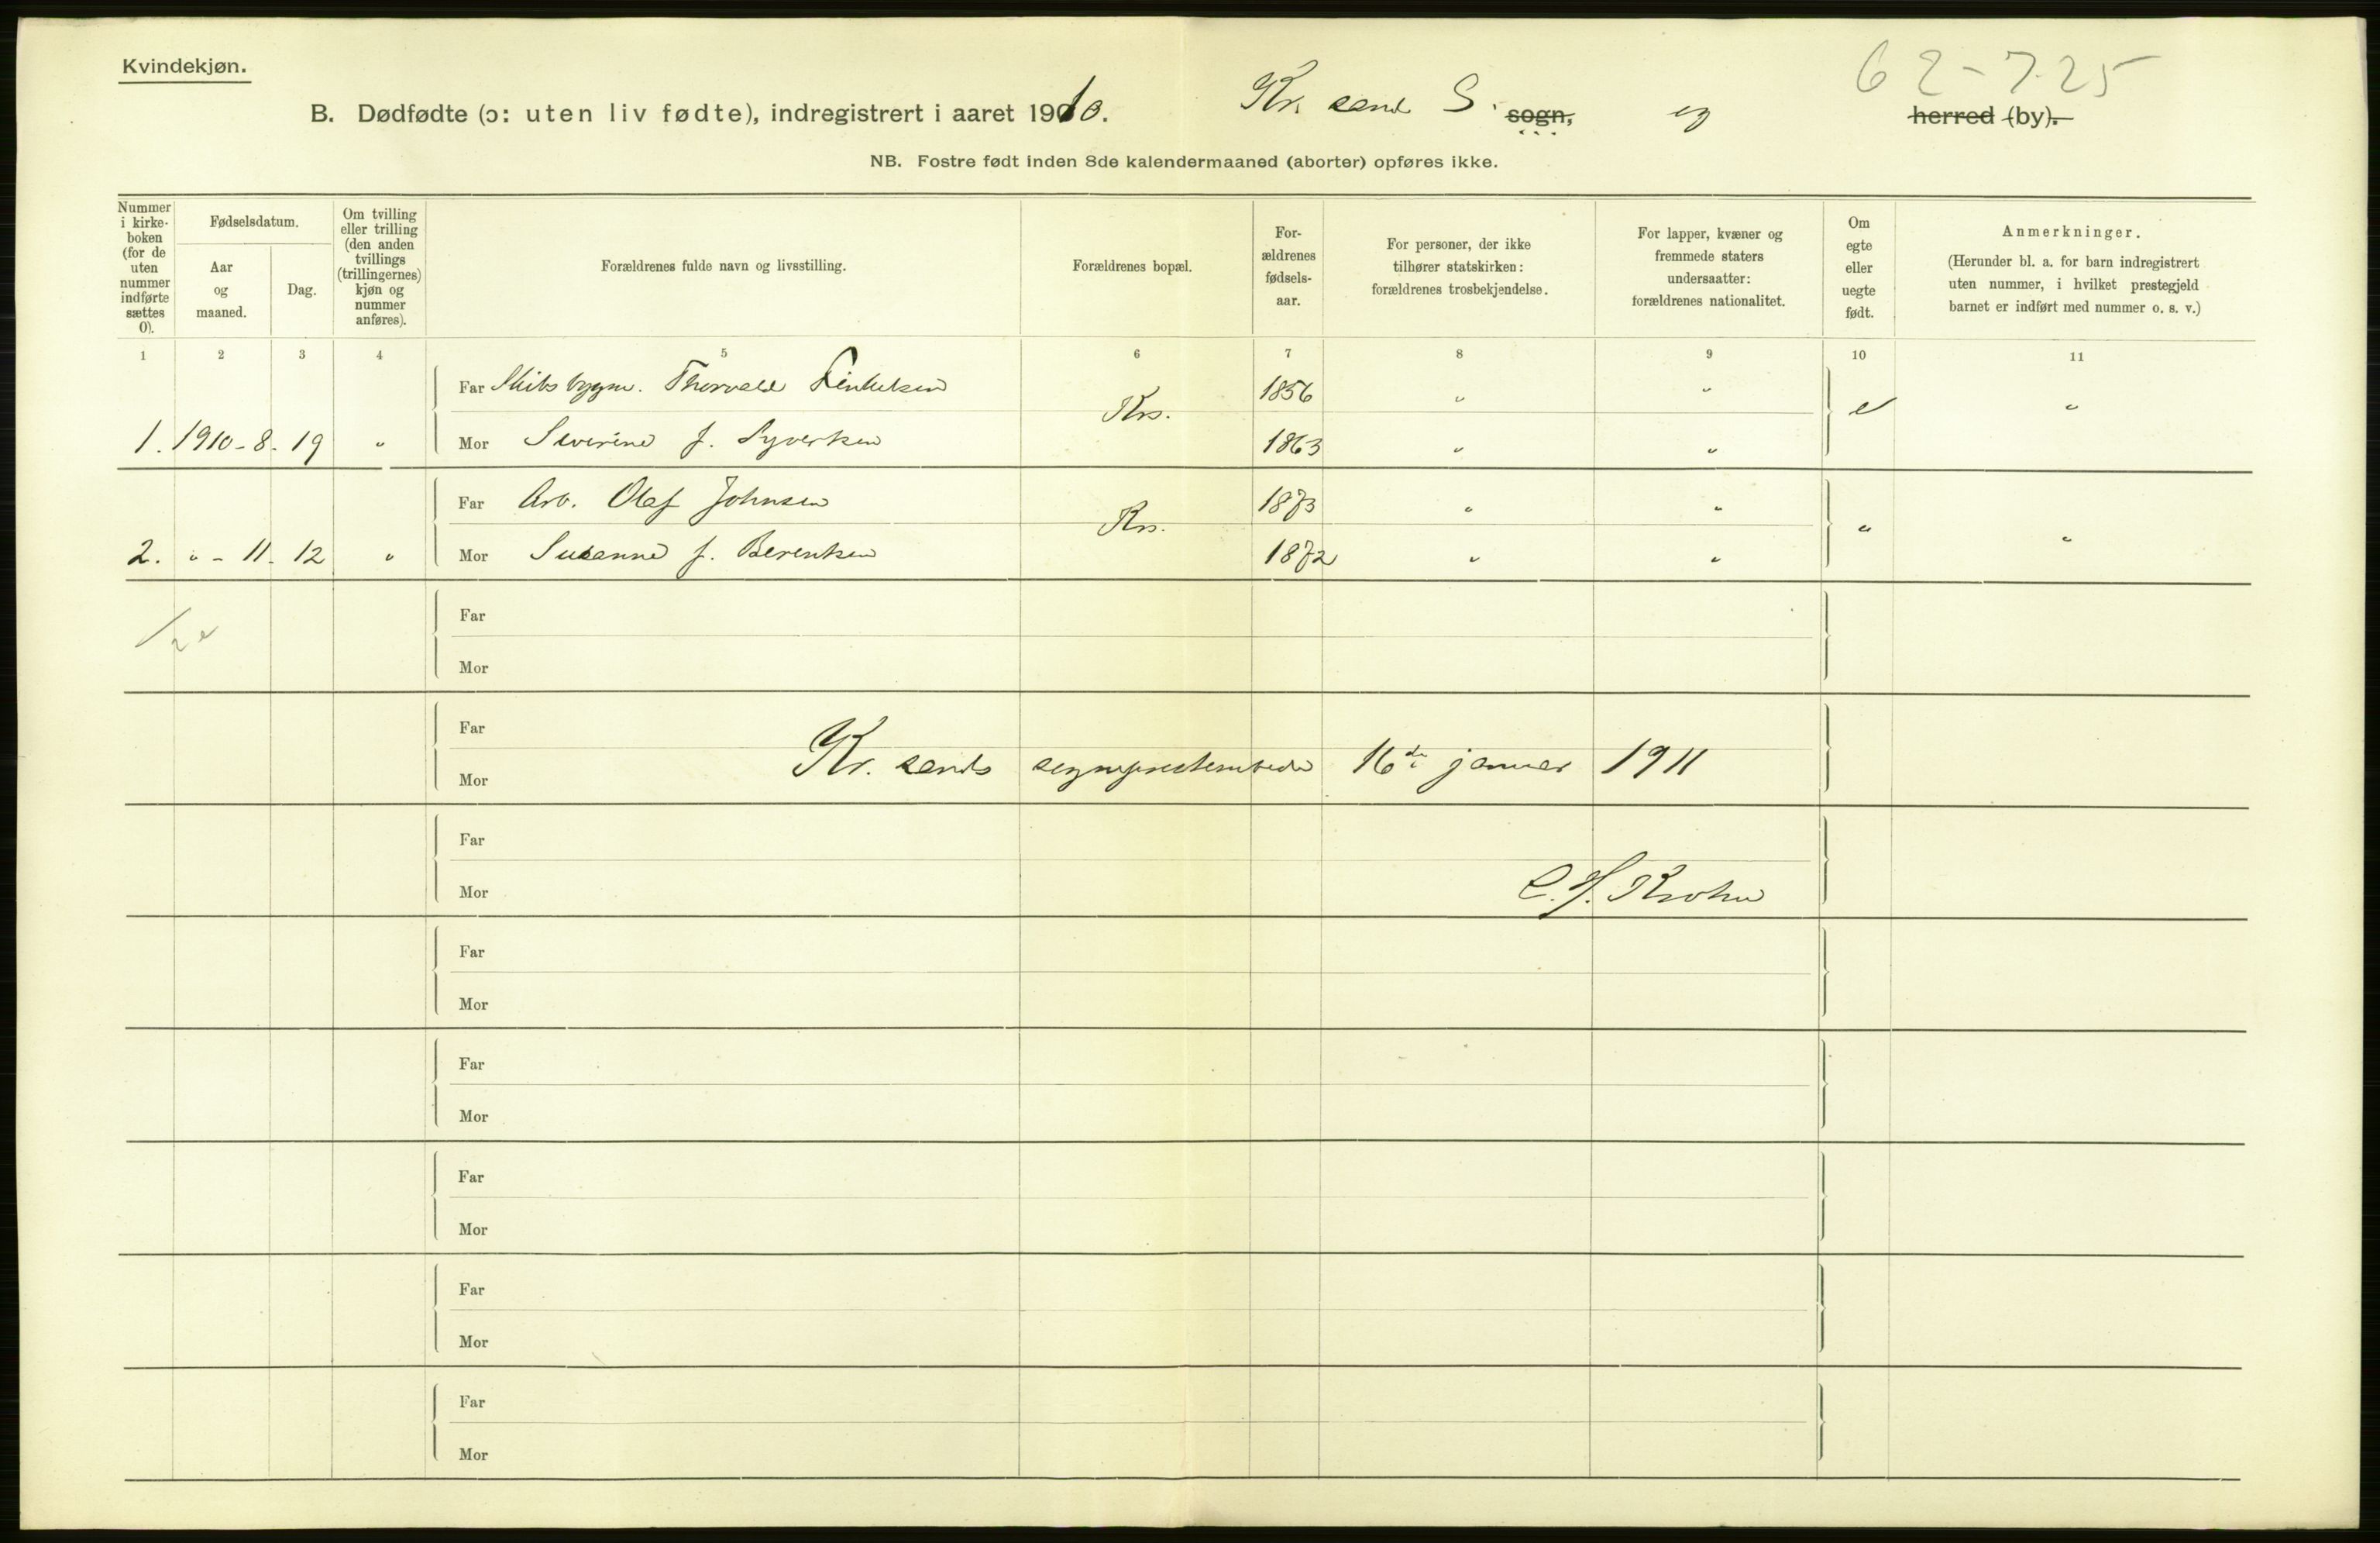 Kvindekjøn.
62-725
B. Dødfødte (ɔ: uten liv fødte), indregistrert i aaret 1910. Kr. sand S. sogn, herred (by).
NB. Fostre født inden 8de kalendermaaned (aborter) opføres ikke.
Nummer i kirke-boken (for de uten nummer indførte sættes 0).
Fødselsdatum.
Aar og maaned.
Dag.
Om tvilling eller trilling (den anden tvillings (trillingernes) kjøn og nummer anføres).
Forældrenes fulde navn og livsstilling.
Forældrenes bopæl.
For-ældrenes fødsels-aar.
For personer, der ikke tilhører statskirken: forældrenes trosbekjendelse.
For lapper, kvæner og fremmede staters undersaatter: forældrenes nationalitet.
Om egte eller uegte født.
Anmerkninger.
(Herunder bl. a. for barn indregistrert uten nummer, i hvilket prestegjeld barnet er indført med nummer o. s. v.)
1 2 3 4 5 6 7 8 9 10 11
Far Skibsbygm. Thorvald 1856 " "
Krs. e "
1. 1910-8-19 " Mor Severine f. Syvertsen 1863 " "
Far Arb. Olaf Johnsen 1873 " "
Krs. " "
2. " - 11-12 " Mor Susanne f. Berentsen 1872 " "
Far
Mor
Far
Mor Kr. sands sogneprestembede 16de januar 1911
Far
Mor C. H. Krohn
Far
Mor
Far
Mor
Far
Mor
Far
Mor
Far
Mor